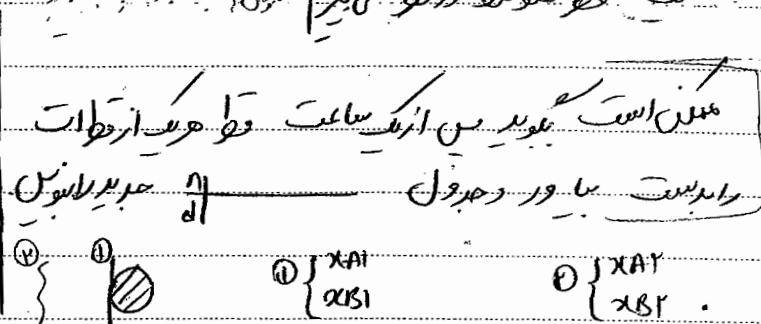 ممکن است بگوید پس از یک ساعت قطر هریک از قطرات
را بدست بیاور و جدول n/d جدید را بنویس
② ① ① { xA1 xB1 ② { xA2 xB2 .